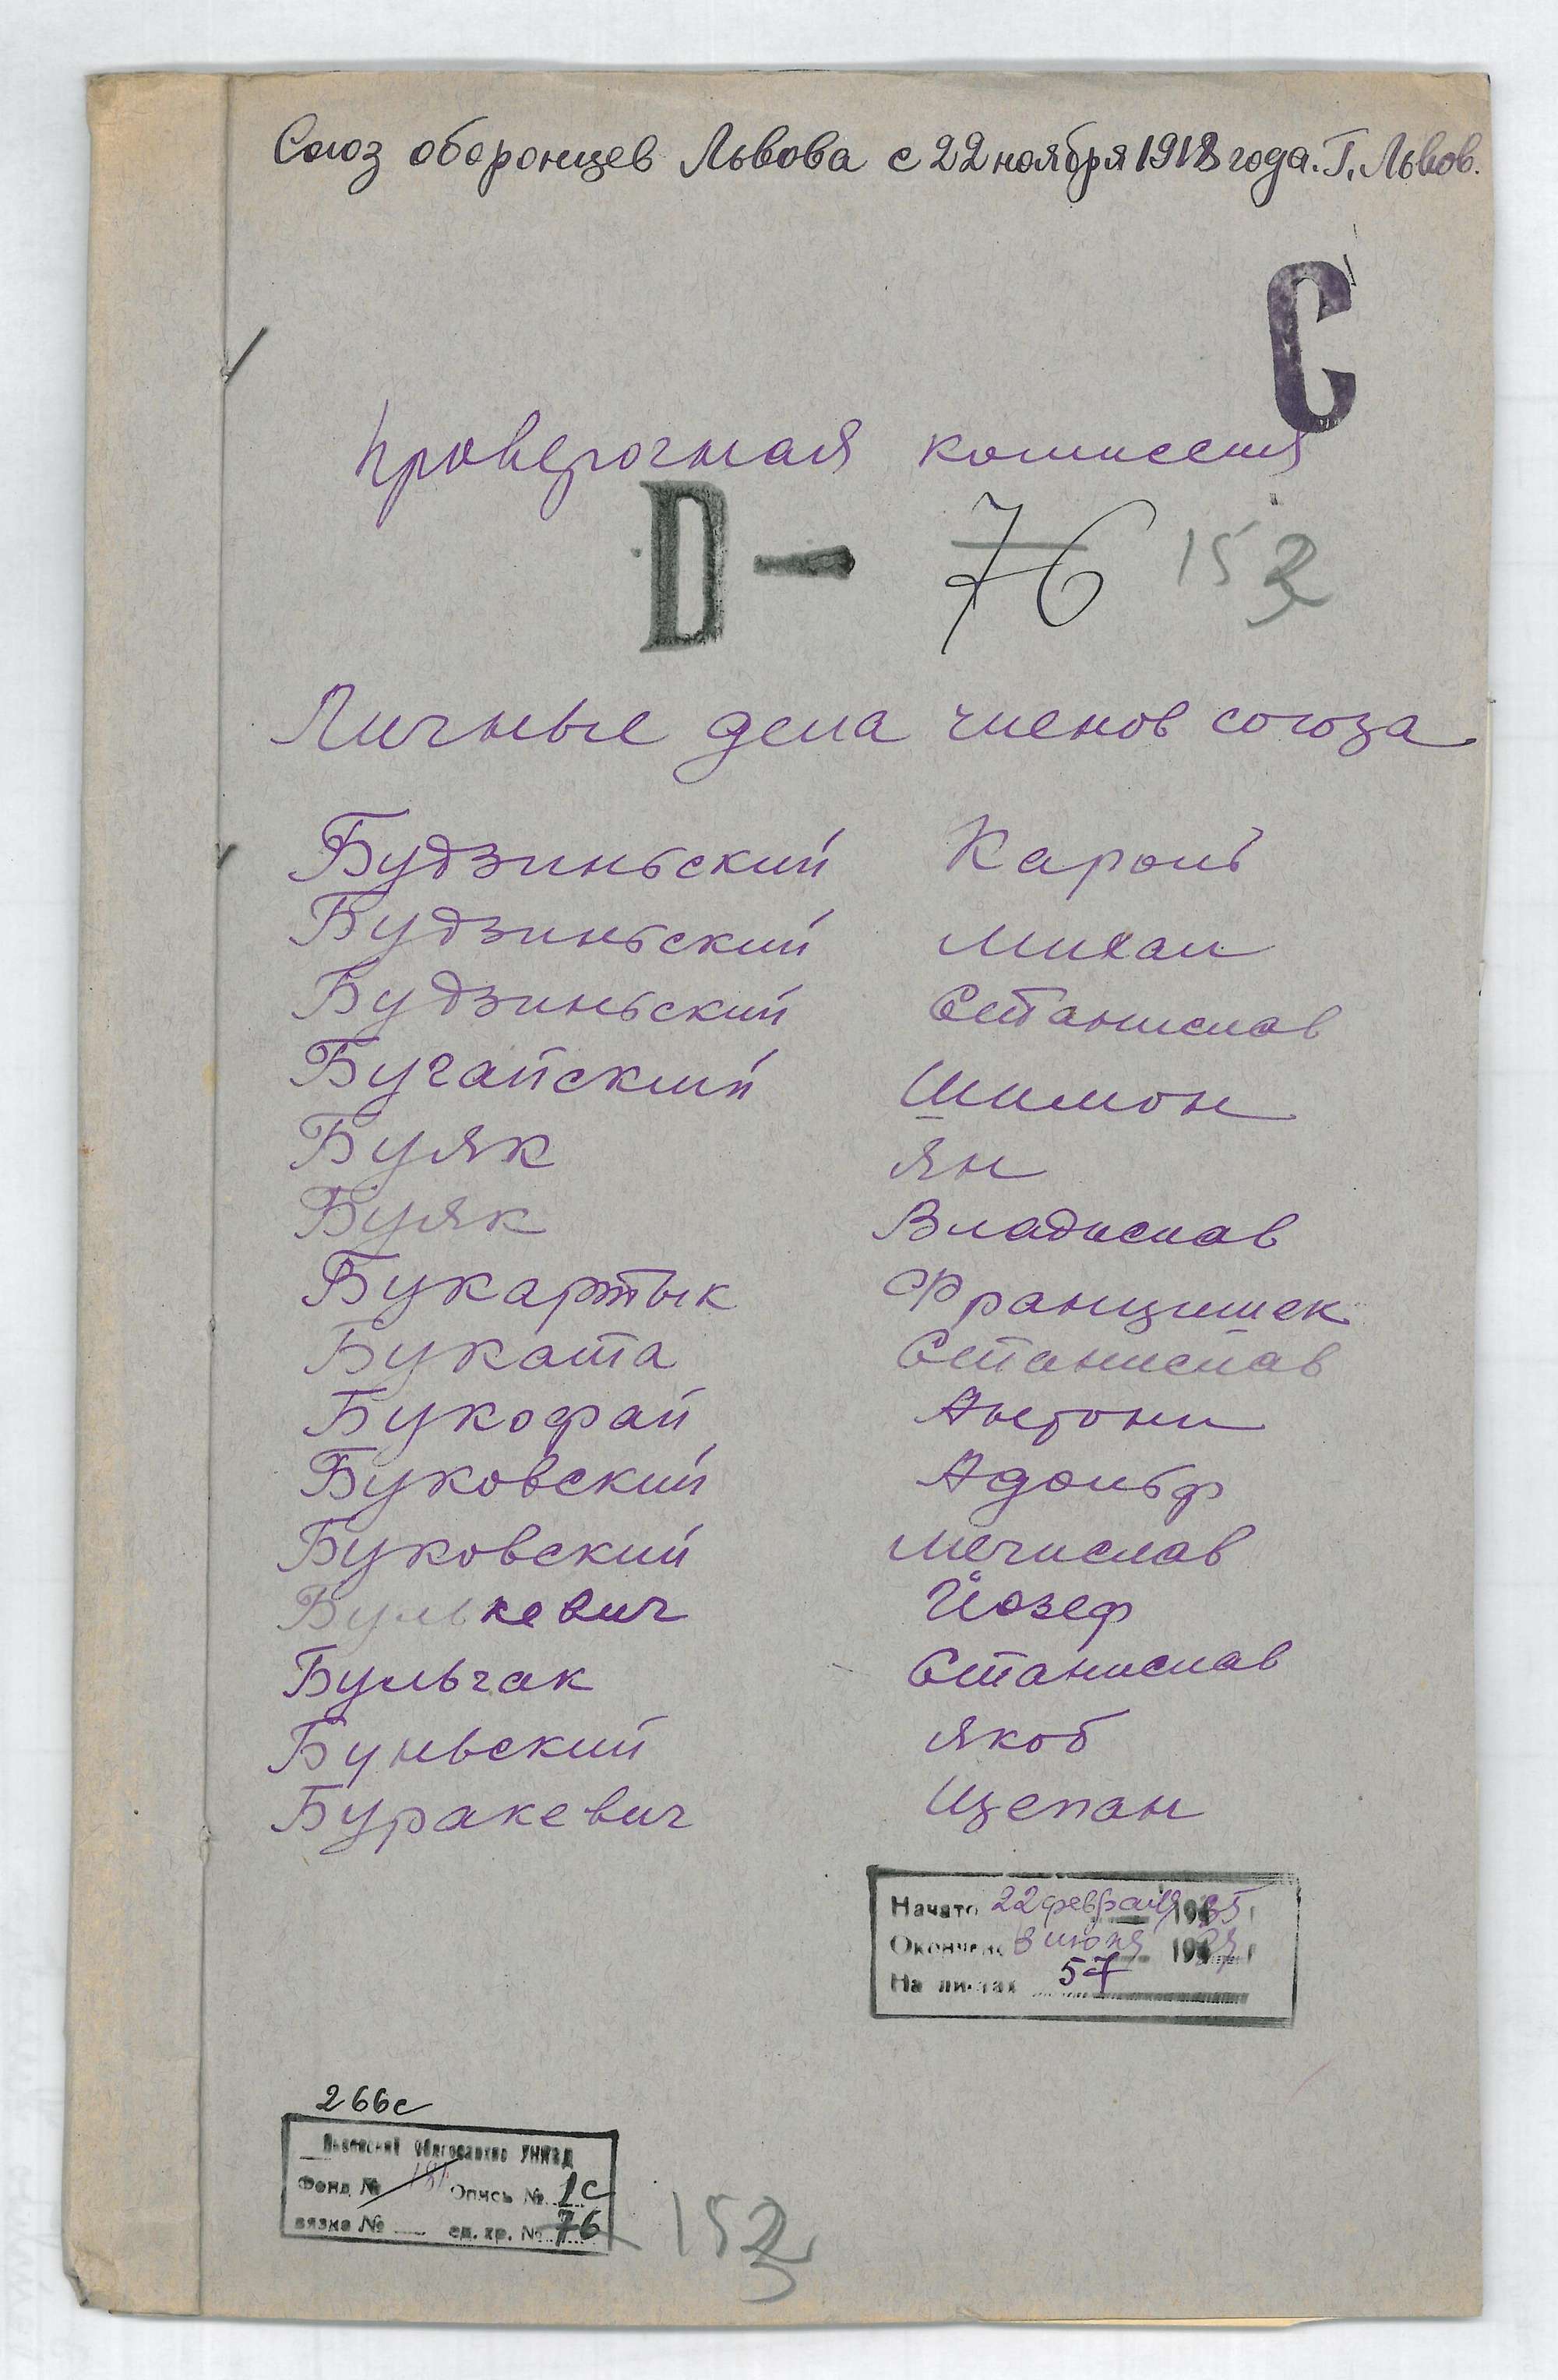 Союз оборонцев Львова с 22 ноября 1918 года. Г. Львов.
С
Проверочная комиссия
D — 76 152
Личные дела членов союза
Будзиньский Кароль
Будзиньский Михал
Будзиньский Станислав
Бугайский Шимон
Буяк Ян
Буяк Владислав
Букартык Францишек
Буката Станислав
Букофай Антони
Буковский Адольф
Буковский Мечислав
Булькевич Йозеф
Бульчак Станислав
Буньский Якоб
Буракевич Щепан
Начато 22 февраля 1935 г
Окончено 8 июня 19
На листах 57
266с
Львовский Облгосархив УНКВД
Фонд № Опись № 1с
вязка № ед. хр. № 76
152